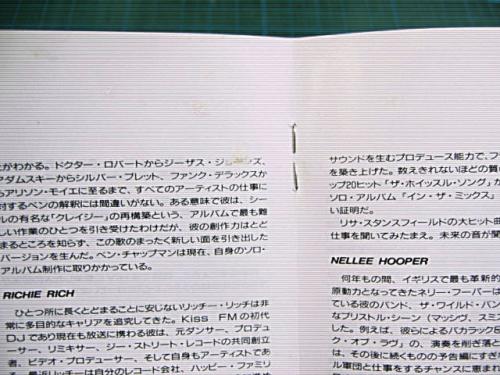 がわかる。ドクター・ロバートからジーザス・ジョーンズ、
アダムスキーからシルバー・ブレット、ファンク・デラックスか
らアリソン・モイエに至るまで、すべてのアーティストの仕事に
対するベンの解釈には間違いがない。ある意味で彼は、シー
ルの有名な「クレイジー」の再構築という、アルバムで最も難
しい作業のひとつを引き受けたわけだが、彼の創作力はとど
まるところを知らず、この歌のまったく新しい面を引き出した
バージョンを生んだ。ベン・チャップマンは現在、自身のソロ・
アルバム制作に取りかかっている。
RICHIE RICH
ひとつ所に長くとどまることに安じないリッチー・リッチは非
常に多目的なキャリアを追究してきた。Kiss FMの初代
DJであり現在も放送に携わる彼は、元ダンサー、プロデュ
ーサー、リミキサー、ジー・ストリート・レコードの共同創立
者、ビデオ・プロデューサー、そして自身もアーティストであ
る。最近リッチーは自分のレコード会社、ハッピー・ファミリ
サウンドを生むプロデュース能力で、フ
を築き上げた。数えきれないほどの質
ップ20ヒット「ザ・ホイッスル・ソング」か
ソロ・アルバム「イン・ザ・ミックス」
い証明だ。
リサ・スタンスフィールドの大ヒット曲
仕事を聞いてみたまえ。未来の音が聞
NELLEE HOOPER
何年もの間、イギリスで最も革新的
原動力となってきたネリー・フーパーは
ている彼のバンド、ザ・ワイルド・バン
なブリストル・シーン（マッシヴ、スミ
した。例えば、彼らによるバカラック
ク・オブ・ラヴ」の、演奏を削ぎ落と
は、その後に続くものの予告編にすぎ
ル軍団と仕事をするチャンスに恵まれ